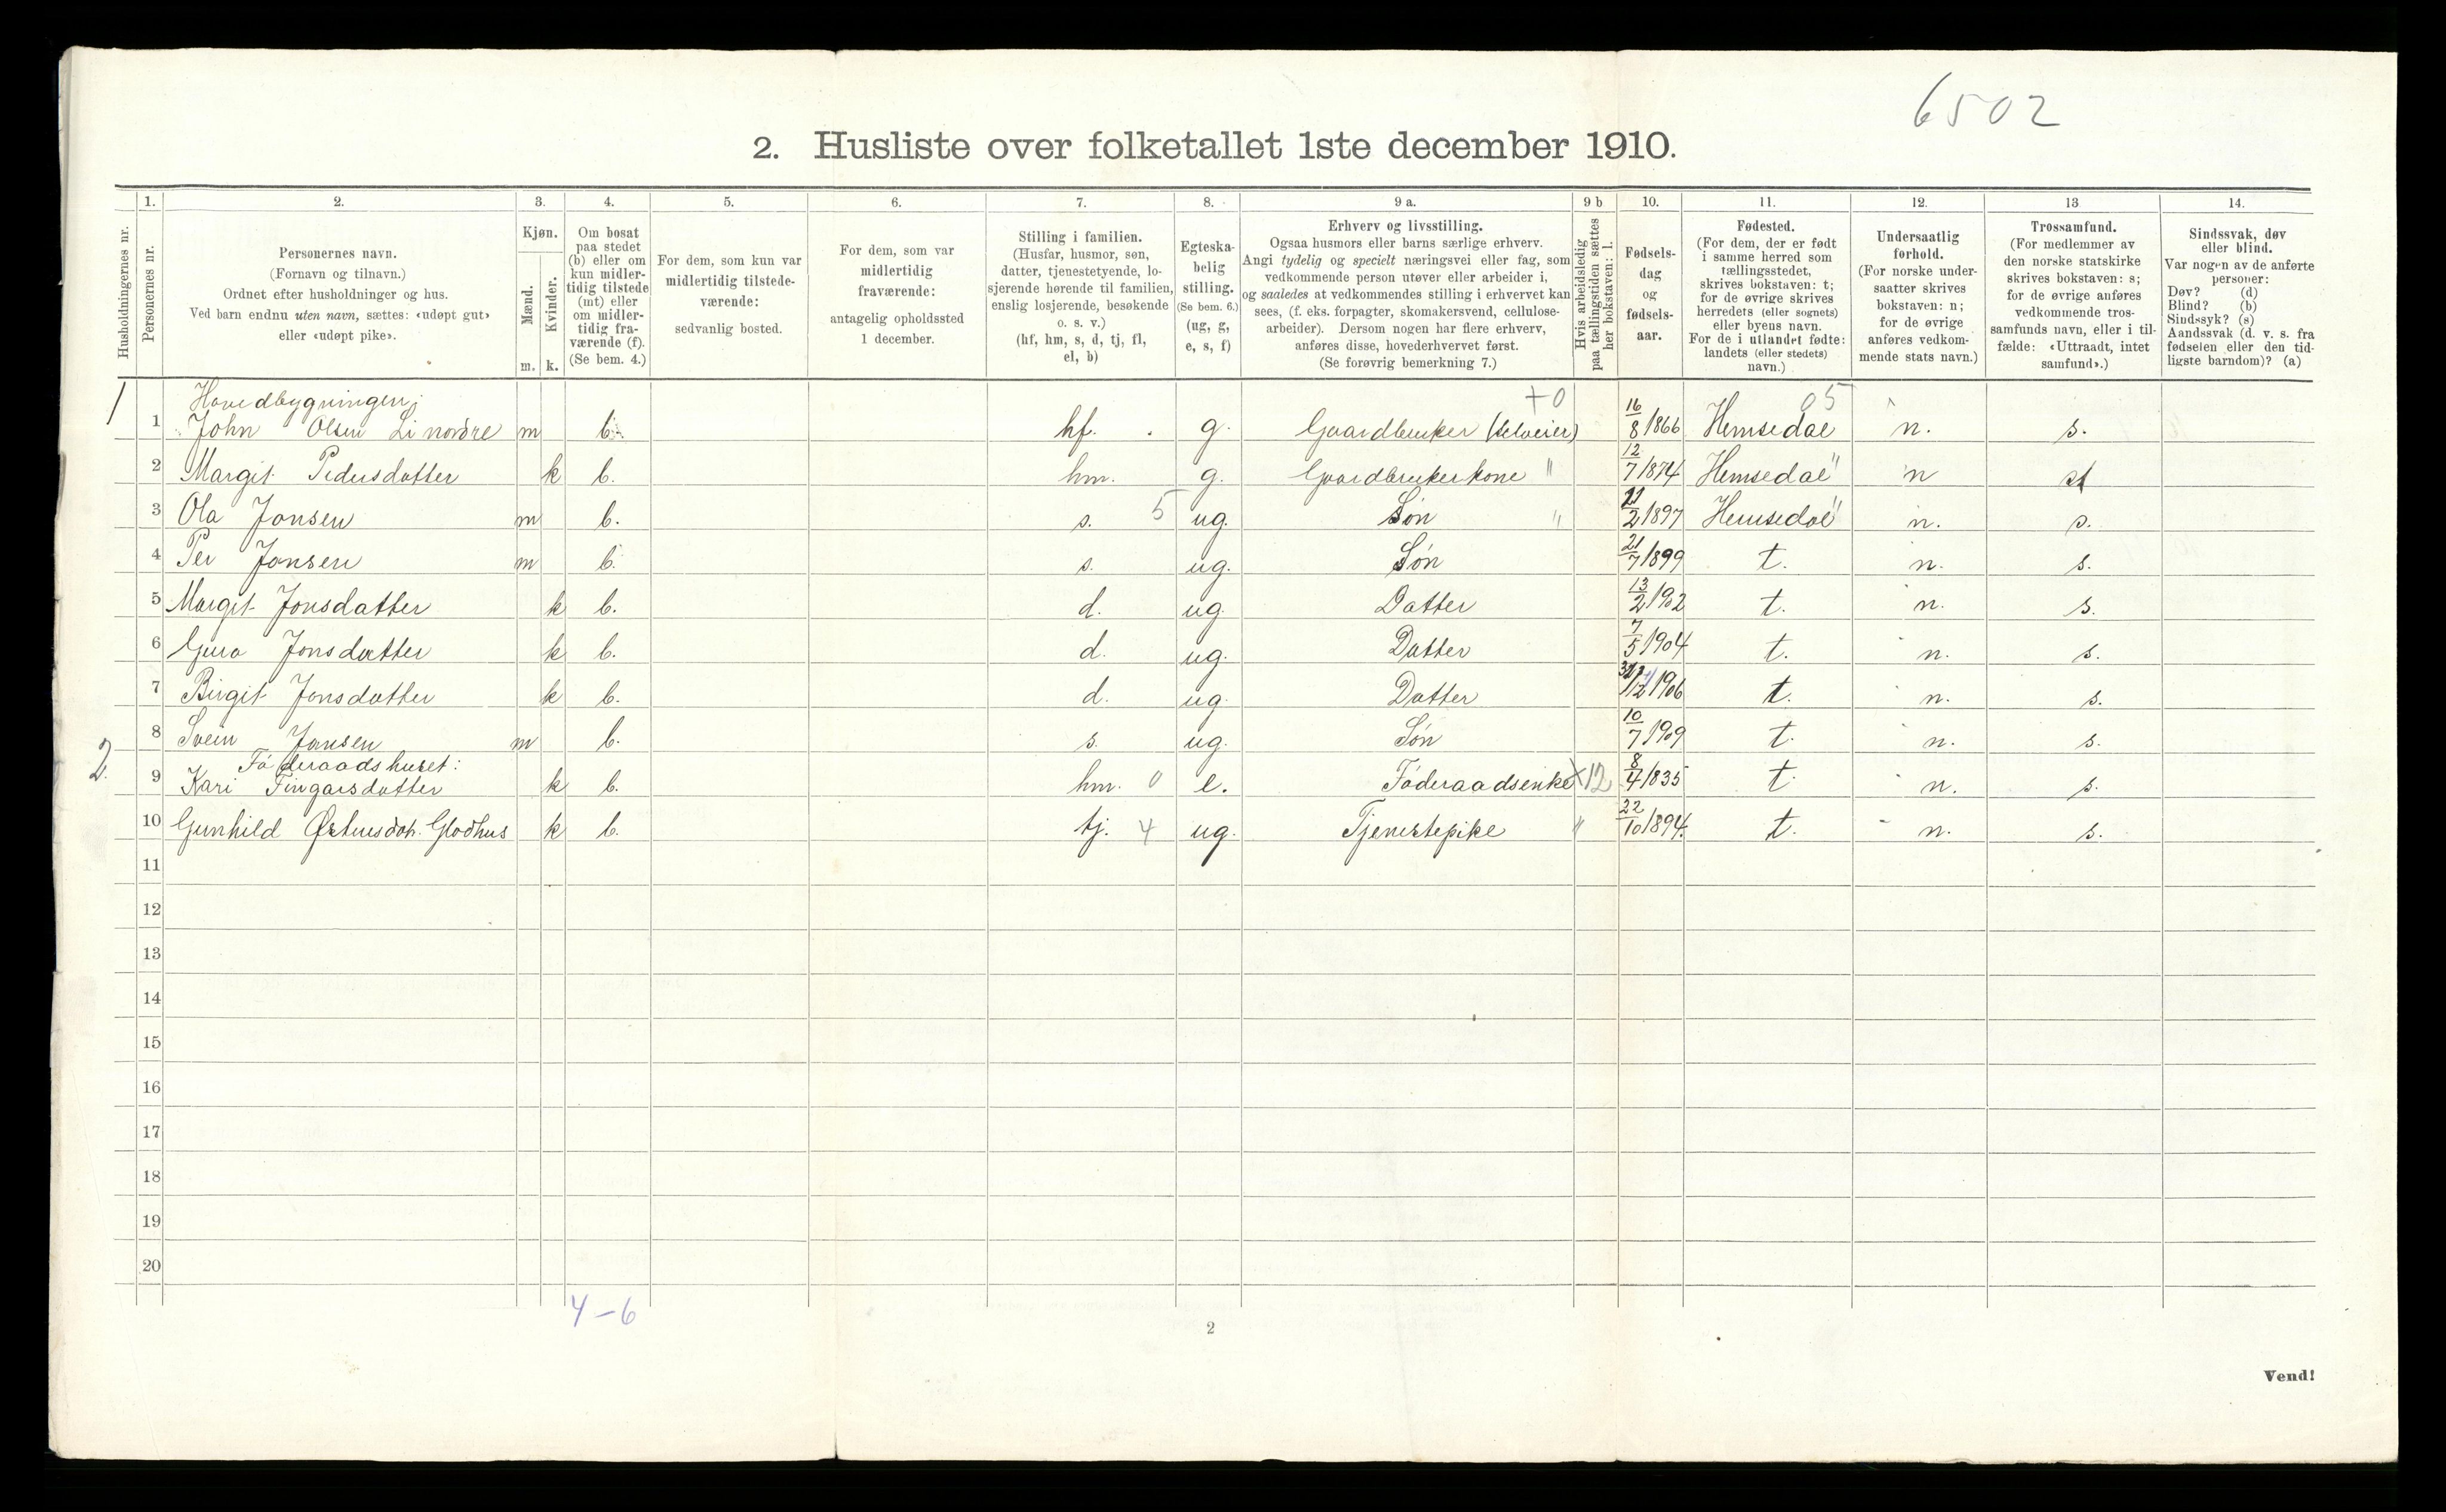 6502
2. Husliste over folketallet 1ste december 1910.
Husholdningernes nr.
1.
Personernes nr.
2.
Personernes navn.
(Fornavn og tilnavn.)
Ordnet efter husholdninger og hus.
Ved barn endnu uten navn, sættes: «udøpt gut»
eller «udøpt pike».
3.
Kjøn.
Mænd.
Kvinder.
m. k.
4.
Om bosat
paa stedet
(b) eller om
kun midler-
tidig tilstede
(mt) eller
om midler-
tidig fra-
værende (f).
(Se bem. 4.)
5.
For dem, som kun var
midlertidig tilstede-
værende:
sedvanlig bosted.
6.
For dem, som var
midlertidig
fraværende:
antagelig opholdssted
1 december.
7.
Stilling i familien.
(Husfar, husmor, søn,
datter, tjenestetyende, lo-
sjerende hørende til familien,
enslig losjerende, besøkende
o. s. v.)
(hf, hm, s, d, tj, fl,
el, b)
8.
Egteska-
belig
stilling.
(Se bem. 6.)
(ug, g,
e, s, f)
9 a.
Erhverv og livsstilling.
Ogsaa husmors eller barns særlige erhverv.
Angi tydelig og specielt næringsvei eller fag, som
vedkommende person utøver eller arbeider i,
og saaledes at vedkommendes stilling i erhvervet kan
sees, (f. eks. forpagter, skomakersvend, cellulose-
arbeider). Dersom nogen har flere erhverv,
anføres disse, hovederhvervet først.
(Se forøvrig bemerkning 7.)
9 b
Hvis arbeidsledig
paa tællingstiden sættes
her bokstaven: l.
10.
Fødsels-
dag
og
fødsels-
aar.
11.
Fødested.
(For dem, der er født
i samme herred som
tællingsstedet,
skrives bokstaven: t;
for de øvrige skrives
herredets (eller sognets)
eller byens navn.
For de i utlandet fødte:
landets (eller stedets)
navn.)
12.
Undersaatlig
forhold.
(For norske under-
saatter skrives
bokstaven: n;
for de øvrige
anføres vedkom-
mende stats navn.)
13
Trossamfund.
(For medlemmer av
den norske statskirke
skrives bokstaven: s;
for de øvrige anføres
vedkommende tros-
samfunds navn, eller i til-
fælde: «Uttraadt, intet
samfund».)
14.
Sindssvak, døv
eller blind.
Var nogen av de anførte
personer:
Døv? (d)
Blind? (b)
Sindssyk? (s)
Aandssvak (d. v. s. fra
fødselen eller den tid-
ligste barndom)? (a)
1 Hovedbygningen: +0 05
1 John Olsen Li nordre m b. hf. g. Gaardbruker (selveier) 16/8 1866 Hemsedal n. s.
2 Margit Pedersdatter k b. hm. g. Gaardbrukerkone " 12/7 1874 Hemsedal " n s
3 Ola Jonsen m b. s. 5 ug. Søn " 11/2 1897 Hemsedal " n. s.
4 Per Jonsen m b. s. ug. Søn 21/7 1899 t. n. s.
5 Margit Jonsdatter k b. d. ug. Datter 13/2 1902 t. n. s.
6 Guro Jonsdatter k b. d. ug. Datter 7/5 1904 t. n. s.
7 Birgit Jonsdatter k b. d. ug. Datter /12 1906 t. n. s.
8 Svein Jonsen m b. s. ug. Søn 10/7 1909 t. n. s.
2. Føderaadshuset:
9 Kari Fingarsdatter k b. hm. 0 e. Føderaadsenke x12 8/4 1835 t n. s.
10 Gunhild Østensdat. Glødhus k b. tj. 4 ug. Tjenestepike " 22/10 1894. t. n. s.
11
12
13
14
15
16
17
18
19
20
4-6
2
Vend!